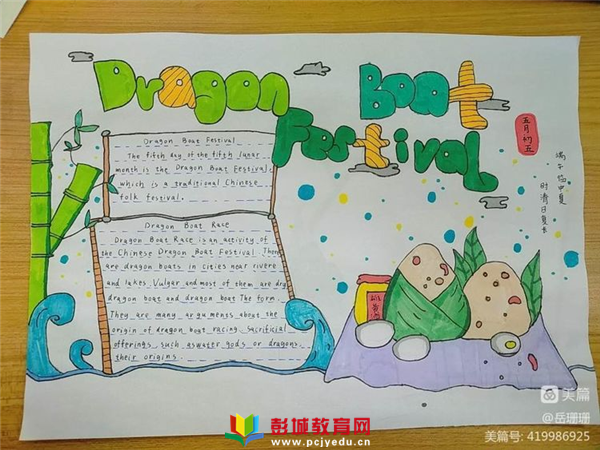 Dragon Boat
Festival
五月初五
端午临中夏
时清日复长
Dragon Boat Festival
The fifth day of the fifth lunar
month is the Dragon Boat Festival,
which is a traditional Chinese
folk festival.
Dragon Boat Race
Dragon Boat Race is an activity of
the Chinese Dragon Boat Festival. There
are dragon boats in cities near rivere
and lakes. Vulgar and most of them are dry
dragon boat and dragon boat The form.
They are many arguments about the
origin of dragon boat racing. Sacrificial
offerings such aswater gods or dragons
their origins.
美篇
@岳珊珊
美篇号: 419986925
彭城教育网
www.pcjyedu.cn